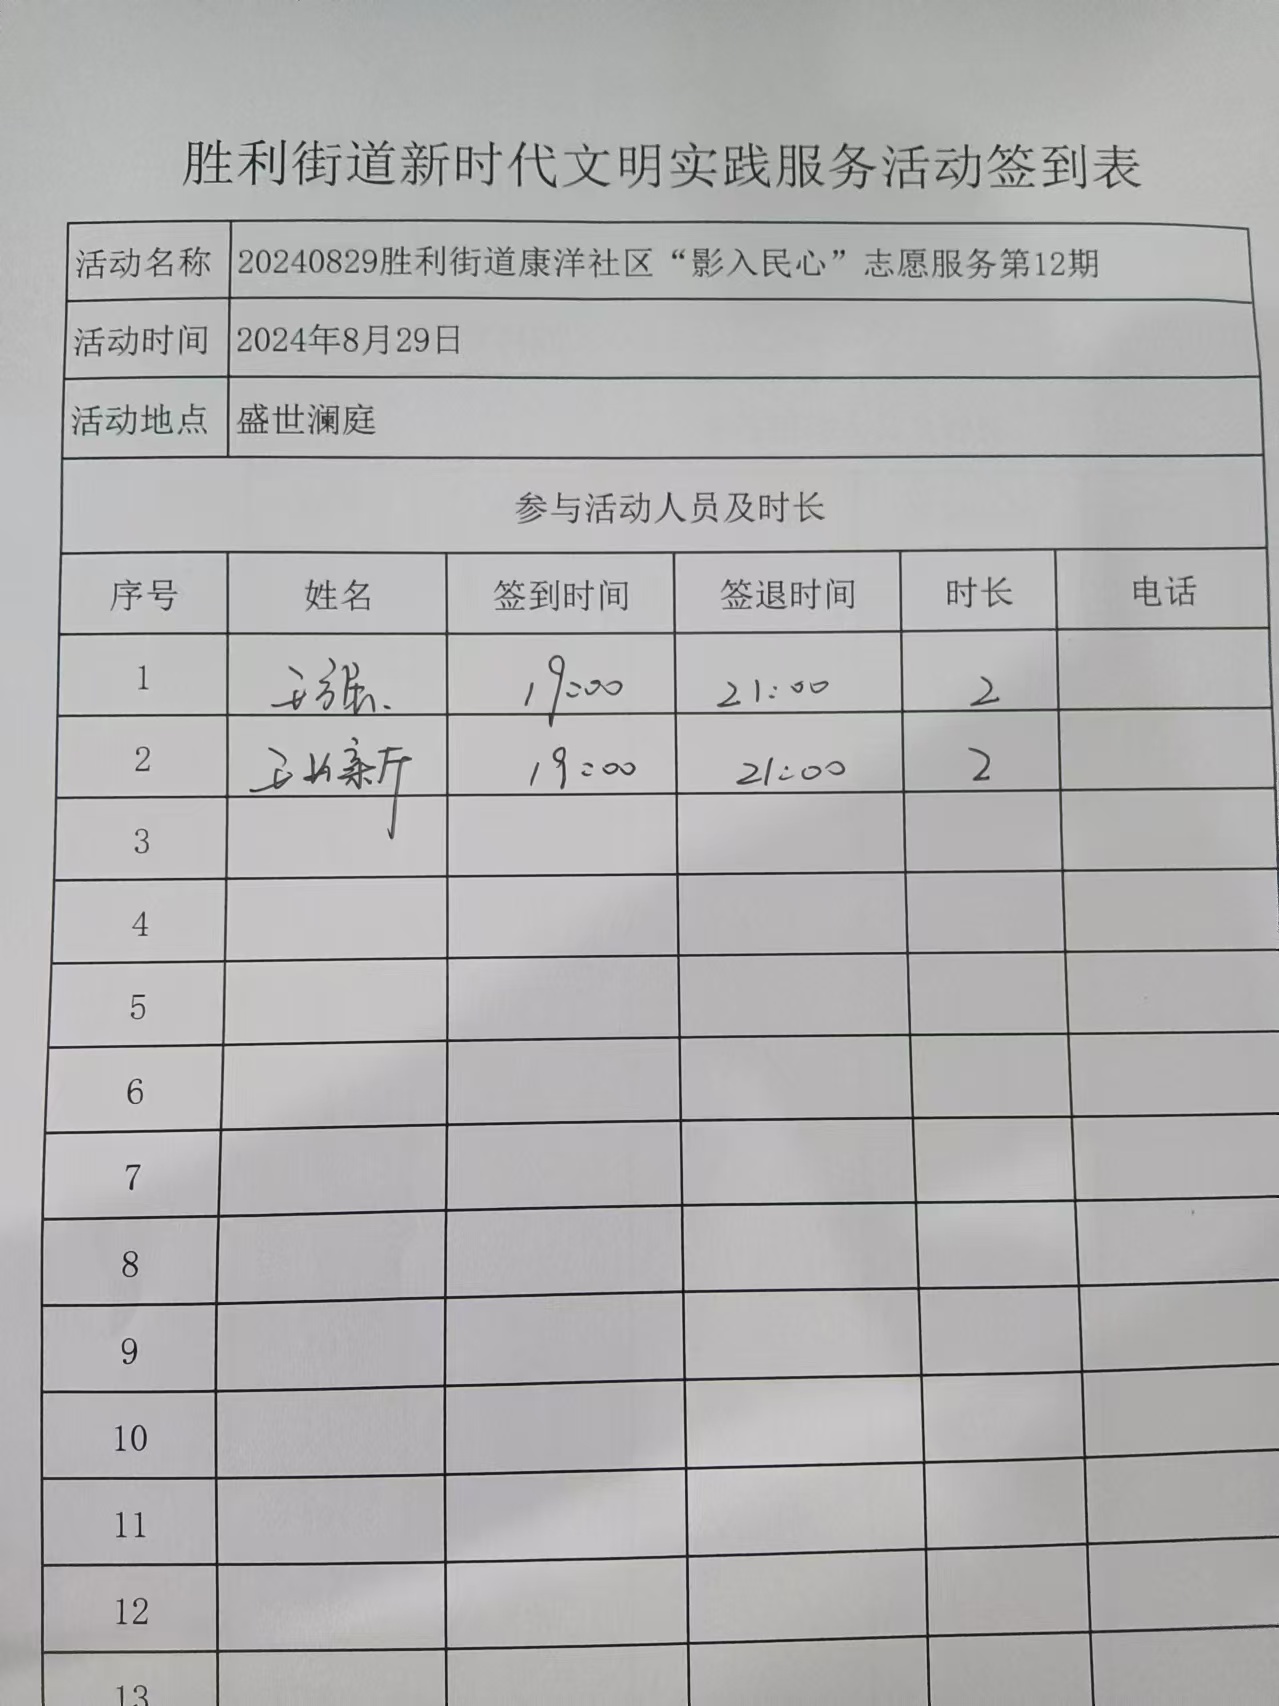 胜利街道新时代文明实践服务活动签到表
活动名称 20240829胜利街道康洋社区“影入民心”志愿服务第12期
活动时间 2024年8月29日
活动地点 盛世澜庭
参与活动人员及时长
序号 姓名 签到时间 签退时间 时长 电话
1 19:00 21:00 2
2 19:00 21:00 2
3
4
5
6
7
8
9
10
11
12
13